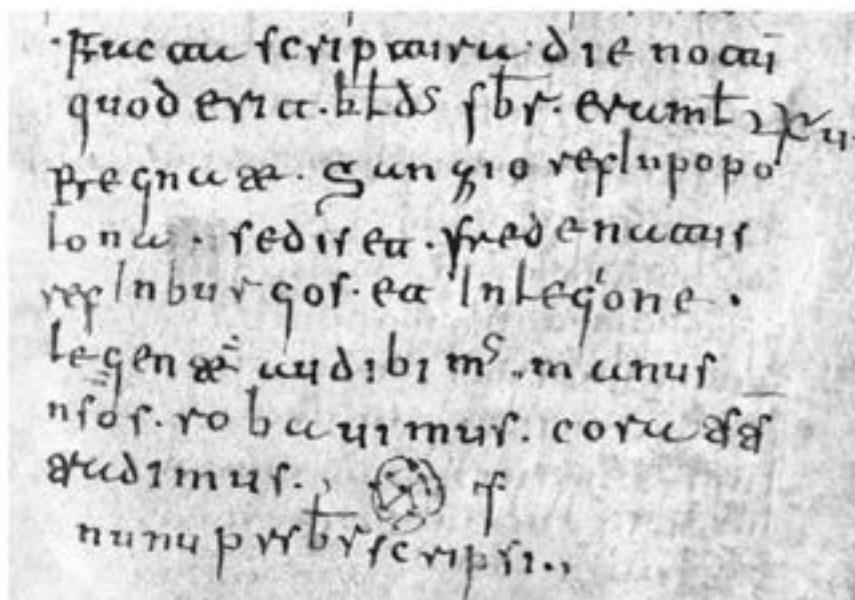 Facta scriptura die notu
quod erit . klds sbr. era
regnate . Sangio rex In popo
lona . sedis et . fredenatus
rex In burgos . et In legione .
legente audibimus . manus
nsos . robauimus . coram
tradimus .,
nunu prsbr scripsi .,